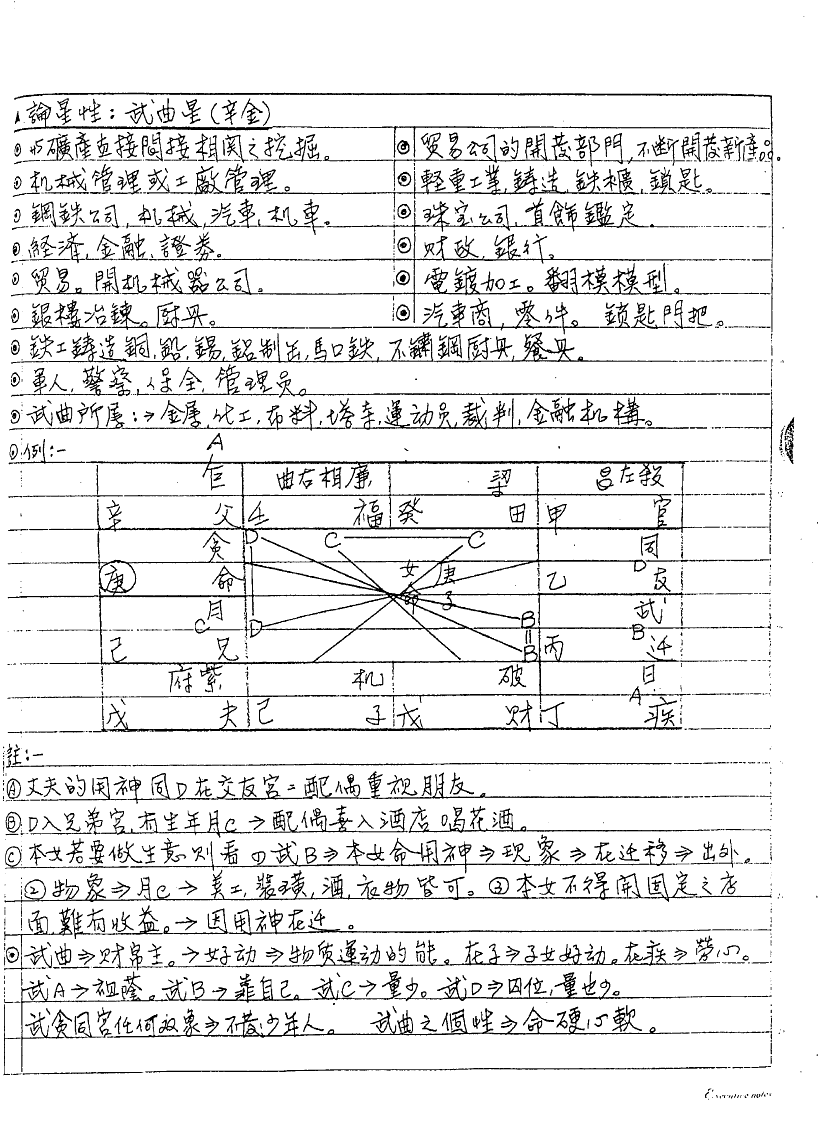 論星性：武曲星(辛金)
与礦產直接間接相関之挖掘。
貿易公司的開發部門,不斷開發新產品.
机械管理或工廠管理。
軽重工業,鋳造,鉄櫃,鎖匙。
鋼鉄公司,机械,汽車,机車。
珠宝公司,首飾鑑定.
経済,金融,證券。
财政,銀行。
貿易。開机械器公司。
電鍍加工。翻模模型。
銀樓冶鍊。厨具。
汽車商,零件。鎖匙門把。
鉄工鋳造銅,鉛,錫,鋁制品,馬口鉄,不鏽鋼厨具,餐具。
軍人,警察,保全,管理员。
武曲所屬:→金屬,化工,布料,運动员,裁判,金融机構。
例:-
A
巨 曲右相廉 梁 昌左殺
辛 父 壬 福 癸 田 甲 官
貪 D C C 同
庚 命 女命 庚子 乙 D 友
月 武
C D B B B
己 兄 丙 迁
府紫 机 破 日
A
戊 夫 己 子 戊 财 丁 疾
註:-
Ⓐ丈夫的用神同D在交友宮=配偶重視朋友。
Ⓑ D入兄弟宮,有生年月C→配偶喜入酒店喝花酒。
Ⓒ本女若要做生意则看①武B⇒本女命用神⇒现象⇒在迁移⇒出外。
②物象⇒月C→美工,裝璜,酒,衣物皆可。③本女不得開固定之店
面,難有收益。→因用神在迁。
武曲⇒财帛主。→好动⇒物质運动的能。在子⇒子女好动。在疾⇒劳心。
武A→祖蔭。武B→靠自己。武C→量少。武D⇒四位,量也少。
武貪同宮任何双象⇒不發少年人。 武曲之個性⇒命硬心軟。
Executive notes